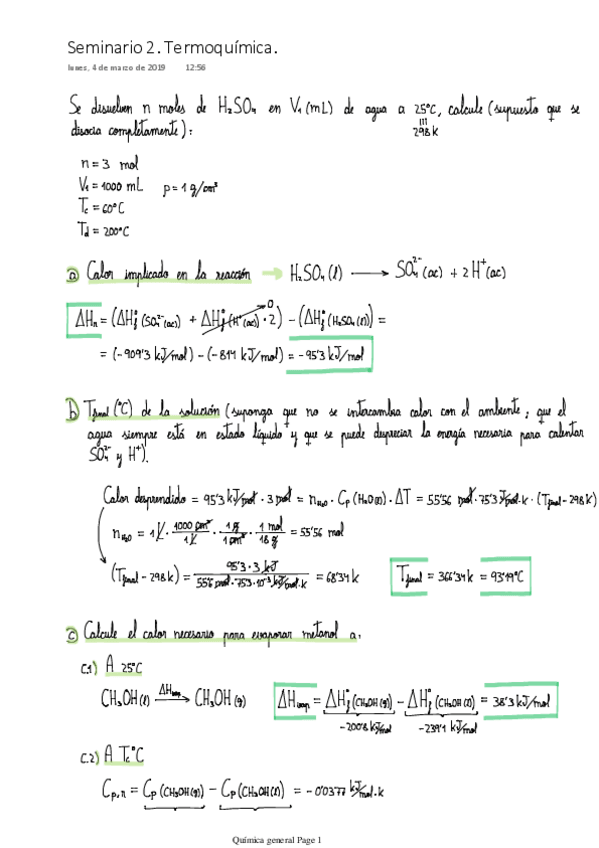 Seminario 2. Termoquímica.
lunes, 4 de marzo de 2019 12:56
Se disuelven n moles de H₂SO₄ en V₁ (mL) de agua a 25°C, calcule (supuesto que se
298 k
disocia completamente):
n = 3 mol
V₁ = 1000 mL ρ = 1 g/cm³
T꜀ = 60°C
T_d = 200°C
a) Calor implicado en la reacción → H₂SO₄ (l) → SO₄²⁻ (ac) + 2 H⁺ (ac)
0
ΔHn = (ΔH°f (SO₄²⁻(ac)) + ΔH°f (H⁺(ac)) · 2) - (ΔH°f (H₂SO₄(l))) =
= (-909'3 kJ/mol) - (-814 kJ/mol) = -95'3 kJ/mol
b) Tfinal (°C) de la solución (suponga que no se intercambia calor con el ambiente; que el
agua siempre está en estado líquido y que se puede depreciar la energía necesaria para calentar
SO₄²⁻ y H⁺).
Calor desprendido = 95'3 kJ/mol · 3 mol = nH₂O · Cp (H₂O(l)) · ΔT = 55'56 mol · 75'3 J/mol·k · (Tfinal - 298 k)
nH₂O = 1 l · 1000 cm³/1 l · 1 g/1 cm³ · 1 mol/18 g = 55'56 mol
(Tfinal - 298 k) = 95'3 · 3 kJ / 55'6 mol · 75'3 · 10⁻³ kJ/mol·k = 68'34 k Tfinal = 366'34 k = 93'19°C
c) Calcule el calor necesario para evaporar metanol a:
c.1) A 25°C
CH₃OH (l) ΔHvap → CH₃OH (g) ΔHvap = ΔH°f (CH₃OH (g)) - ΔH°f (CH₃OH (l)) = 38'3 kJ/mol
-200'8 kJ/mol -239'1 kJ/mol
c.2) A T꜀ °C
Cp,n = Cp (CH₃OH(g)) - Cp (CH₃OH(l)) = -0'0377 kJ/mol·k
Química general Page 1